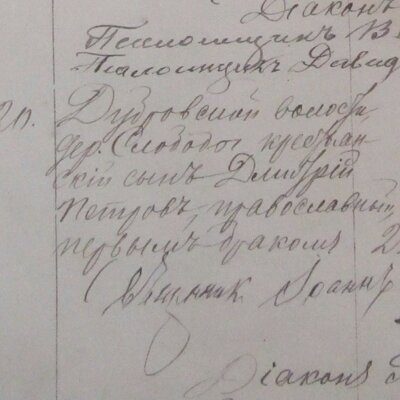 Діаконъ
Псаломщикъ
Псаломщикъ Давид
20. Дубровской волости,
дер. Слободы крестьян-
скій сынъ Димитрій
Петровъ, православный,
первымъ бракомъ 2
Священник Іоаннъ
Діаконъ